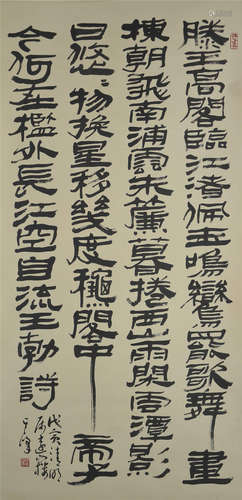 滕王高閣臨江渚佩玉鳴鸞罷歌舞畫
棟朝飛南浦雲朱簾暮捲西山雨閑雲潭影
日悠〻物換星移幾度龝閣中帝子
今何在檻外長江空自流王勃詩
清明